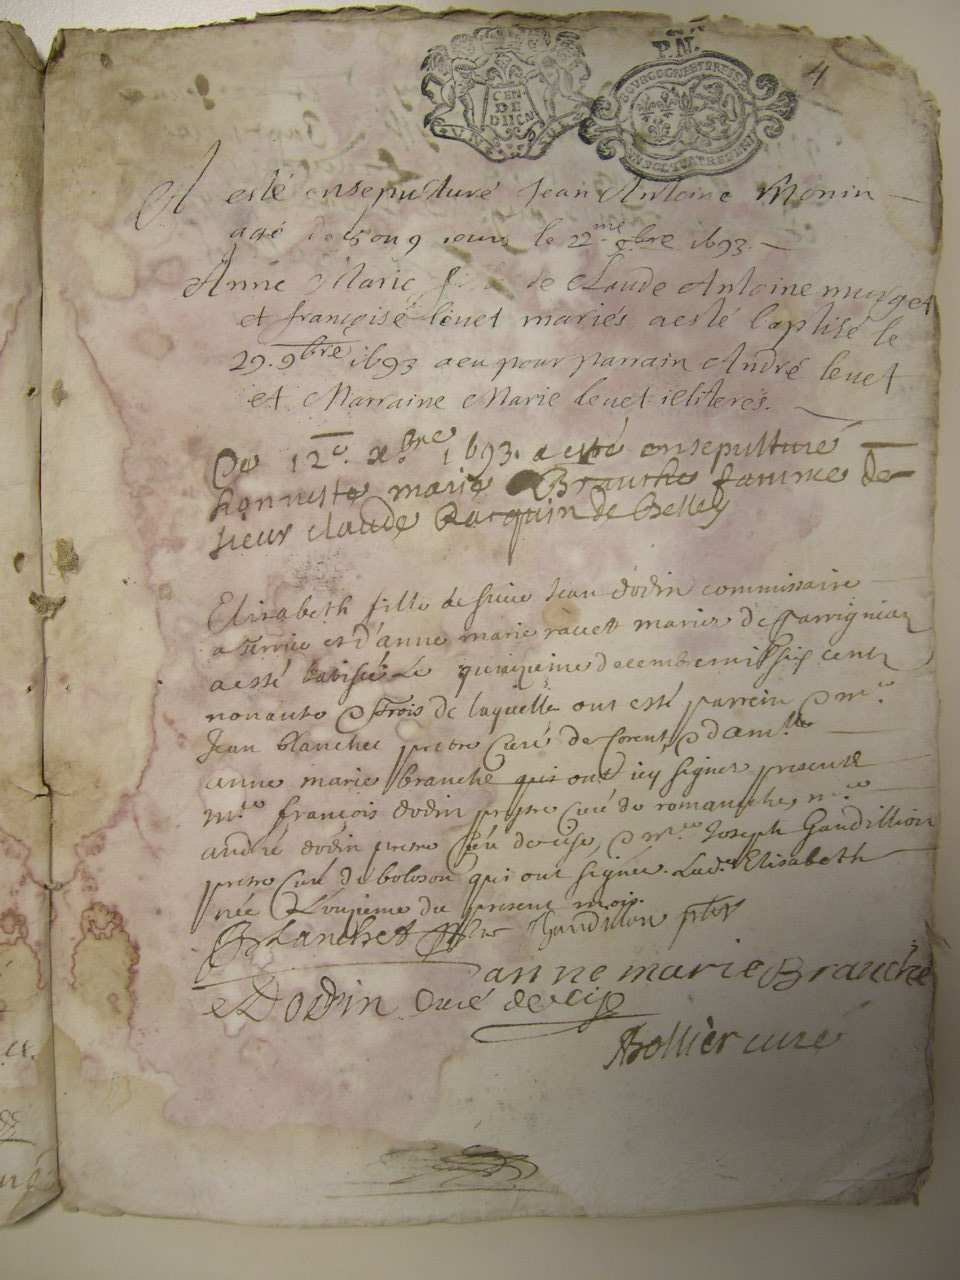 P.N. 4
CEN
DE
DIICAV
BOURGOGNE ET BRESSE
A esté ensepulturé Jean Antoine Monin
agé de 8 ou 9 jours le 22me 9bre 1693.
Anne Marie fille de Claude Antoine murget
et françoise leuet mariés a esté baptisé le
29. 9bre 1693 a eu pour parrain André leuet
et Marraine Marie leuet illiterés.
Ce 12e. xbre 1693. a esté ensepulturé
honneste marie Branche famme de
sieur claude Racquin de Belley
Elisabeth fille de sieur Jean dodin commissaire
a terrier et d'anne marie rauett mariés de
a esté batisée Le quinzieme decembre mil six cent
nonante & trois de laquelle ont esté parrein & mre.
Jean blanchet pretre Curé de Corent, & damlle
anne marie branche qui ont icy signer presents
mre françois dodin pretre Curé de romanche, mre
andré dodin pretre Curé de cise, & mre Joseph Gaudillion
pretre Curé de boloson qui ont signés. Lad. Elisabeth
née L'onzieme du present mois.
Blanchet ptre Gaudillon ptre
anne marie Branche
Dodin Curé de cise
Bollier curé